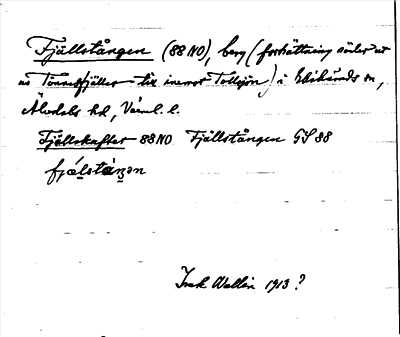 Fjällstången (88 NO), berg (fortsättning söder ut
av Tönnetfjället till inemot Tollsjön) i Ekshärads sn,
Älvdals hd, Värml. l.
Fjällskaftet 88 NO Fjällstången GS 88
fjälstáŋən
Ivak Wallin 1913?